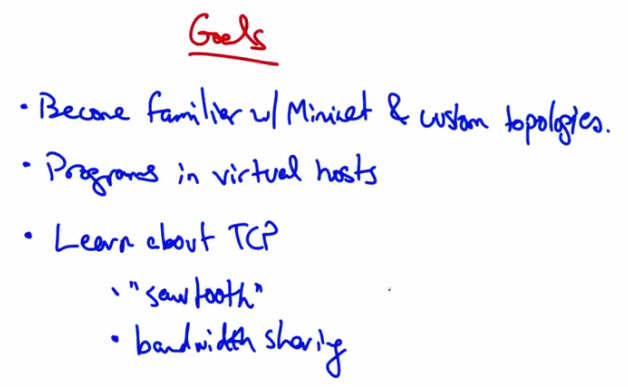 Goals
• Become familiar w/ Mininet & custom topologies.
• Programs in virtual hosts
• Learn about TCP
• "sawtooth"
• bandwidth sharing